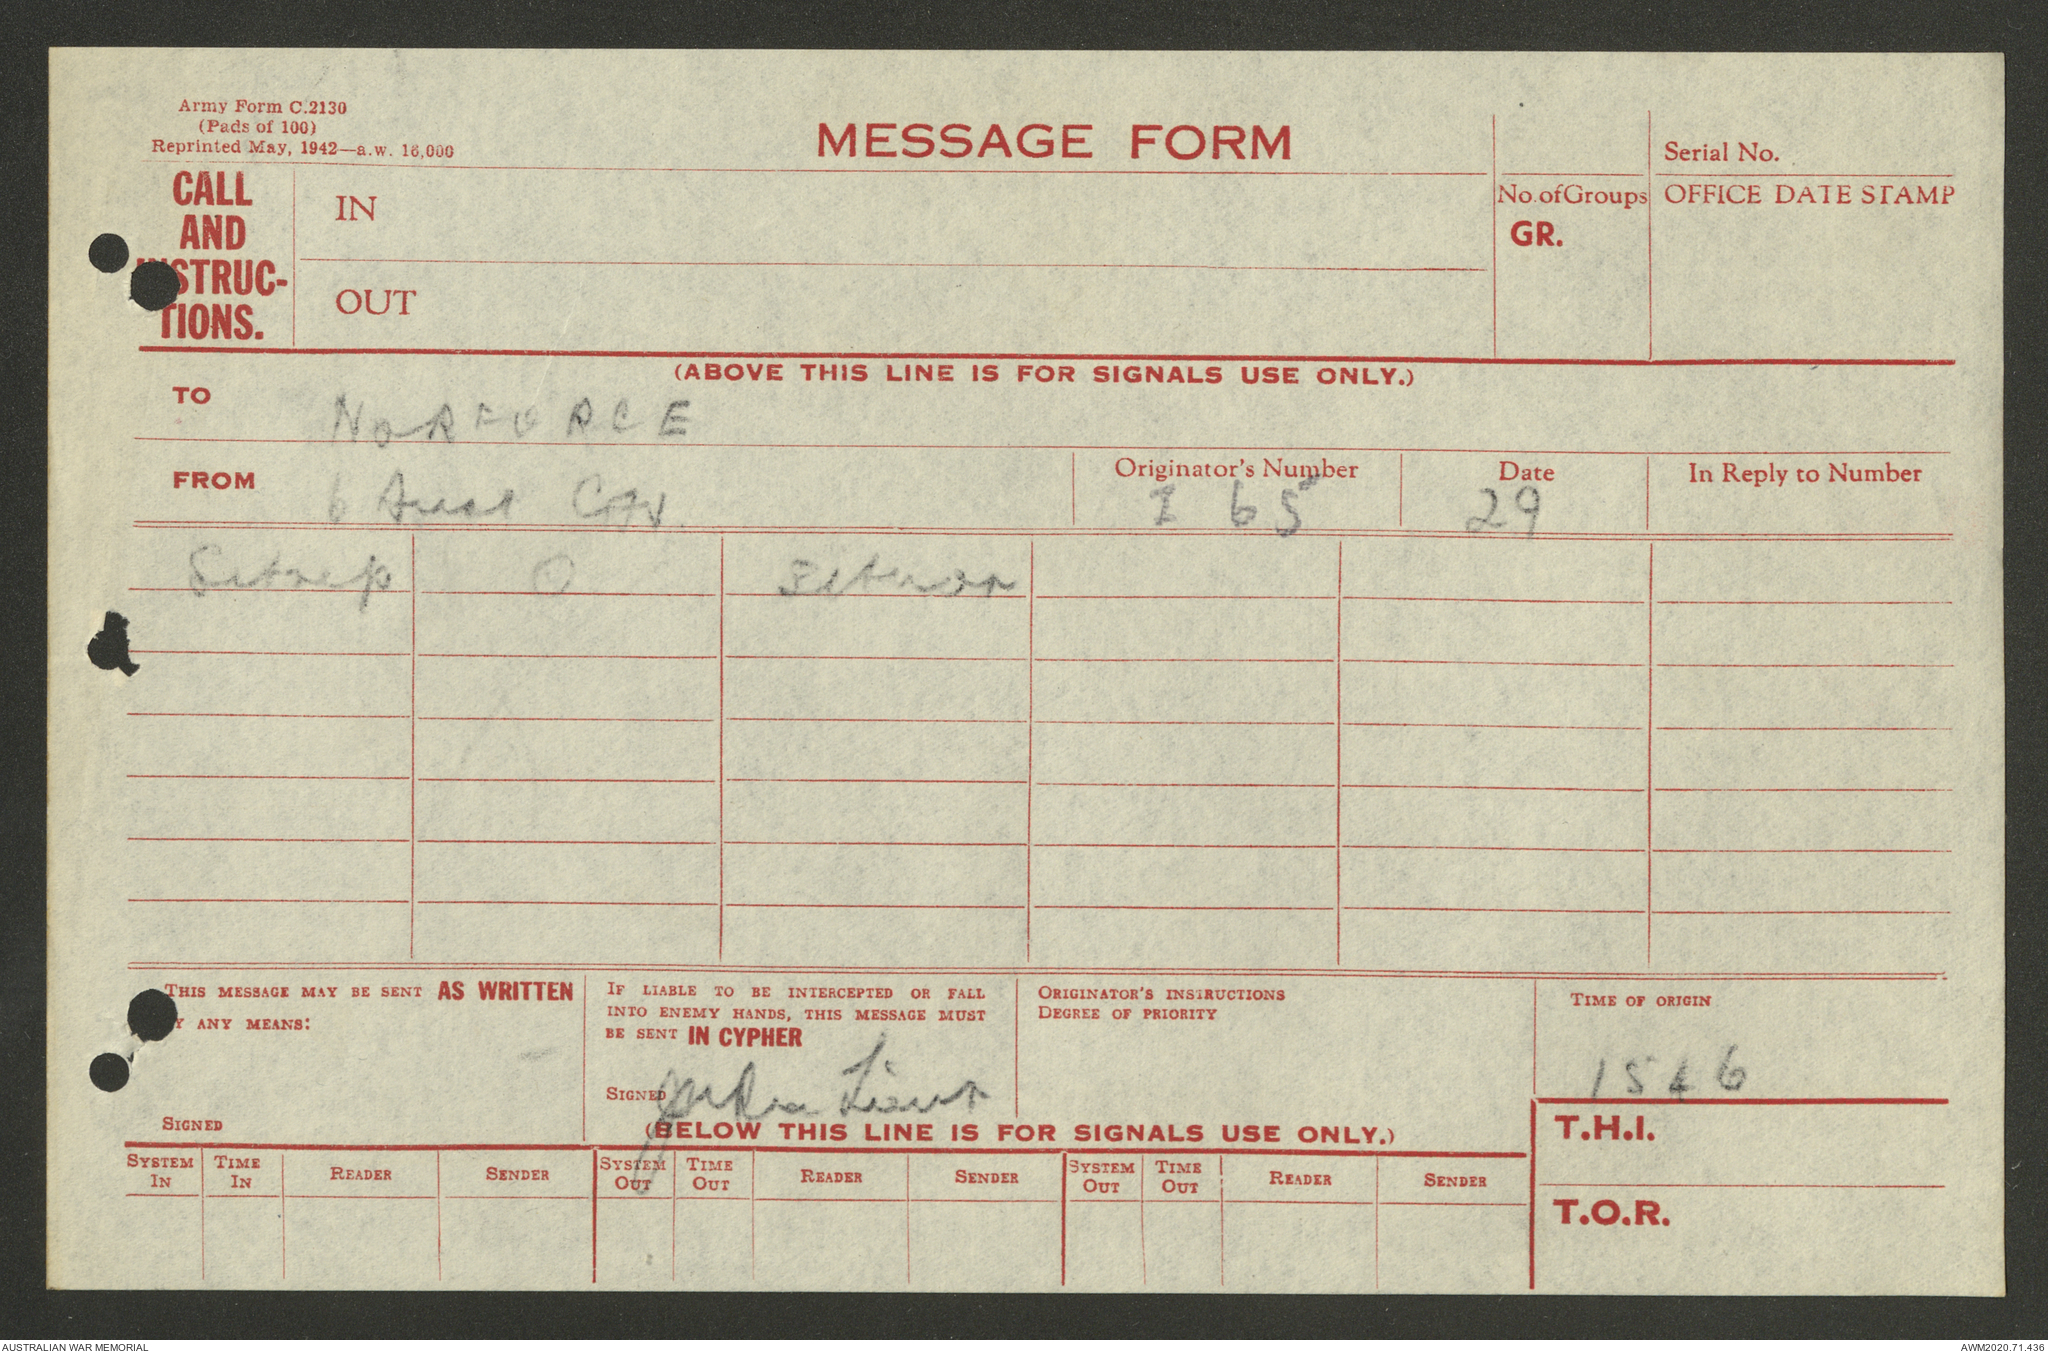 Army Form C.2130
(Pads of 100)
Reprinted May, 1942—a.w. 16,000
MESSAGE FORM
Serial No.
CALL
AND
INSTRUC-
TIONS.
IN
OUT
No. of Groups
GR.
OFFICE DATE STAMP
(ABOVE THIS LINE IS FOR SIGNALS USE ONLY.)
TO
NORFORCE
FROM
6 Aust Cav
Originator's Number
I 65
Date
29
In Reply to Number
Sitrep O
THIS MESSAGE MAY BE SENT AS WRITTEN
BY ANY MEANS:
SIGNED
IF LIABLE TO BE INTERCEPTED OR FALL
INTO ENEMY HANDS, THIS MESSAGE MUST
BE SENT IN CYPHER
SIGNED Lieut
ORIGINATOR'S INSTRUCTIONS
DEGREE OF PRIORITY
TIME OF ORIGIN
1546
(BELOW THIS LINE IS FOR SIGNALS USE ONLY.)
T.H.I.
T.O.R.
SYSTEM IN TIME IN READER SENDER SYSTEM OUT TIME OUT READER SENDER SYSTEM OUT TIME OUT READER SENDER
AUSTRALIAN WAR MEMORIAL
AWM2020.71.436